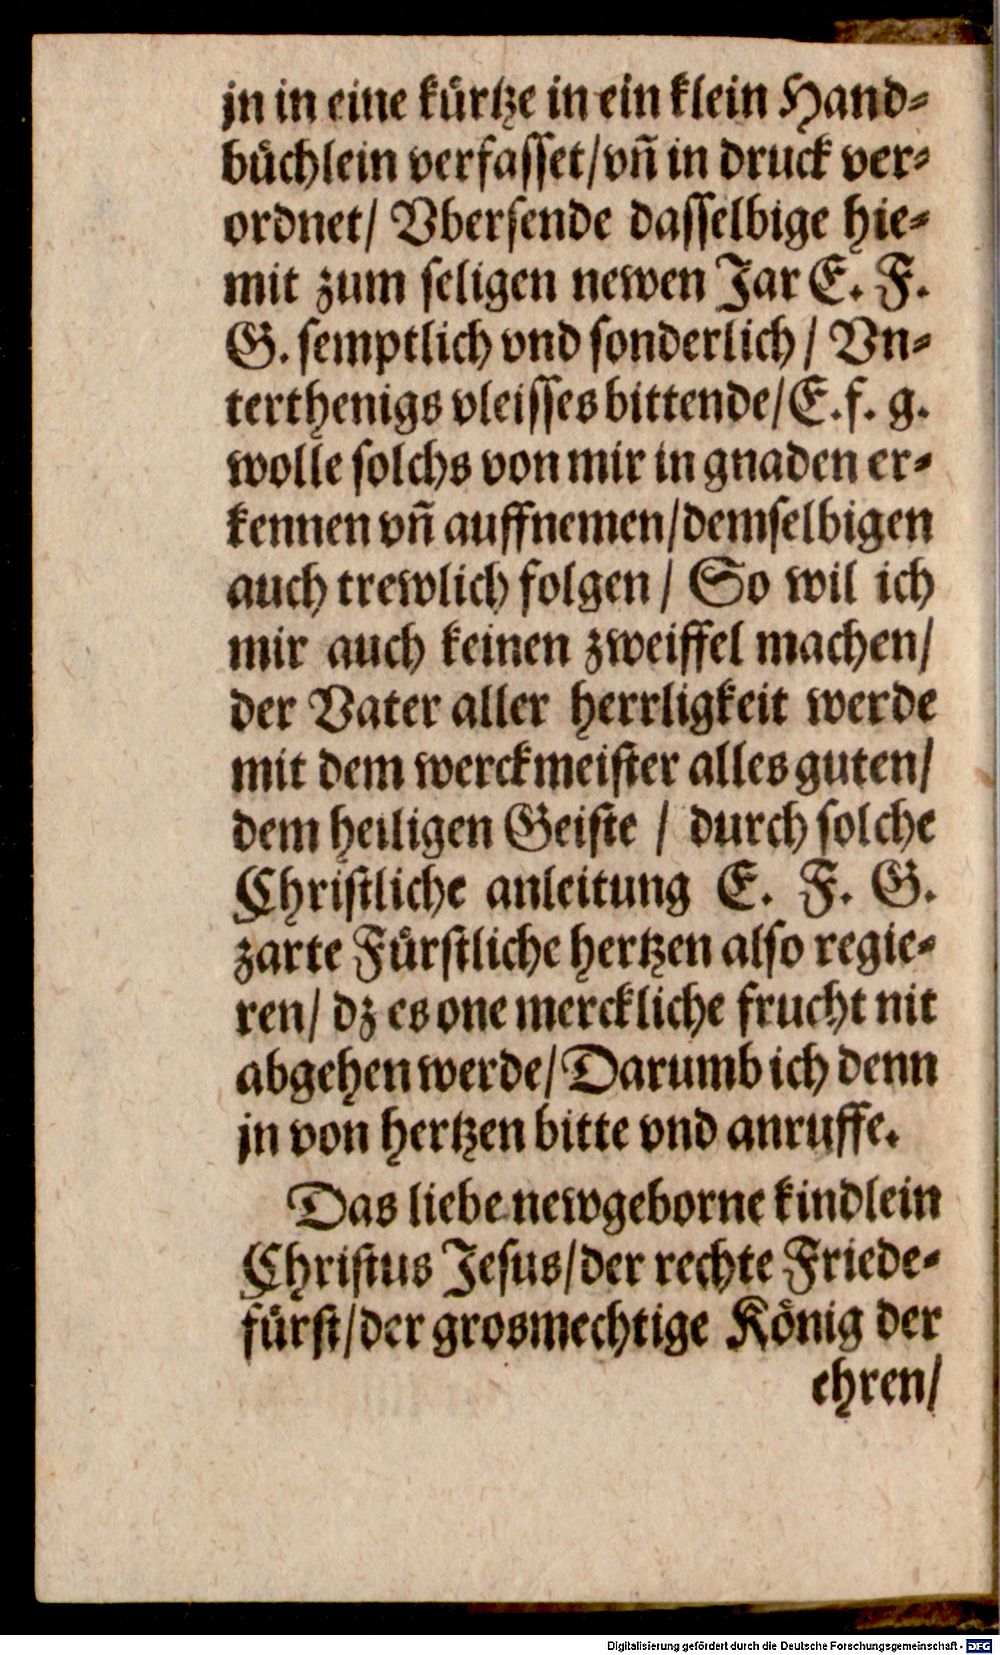 jn in eine kürtze in ein klein Hand-
büchlein verfasset/vñ in druck ver-
ordnet/ Vbersende dasselbige hie-
mit zum seligen newen Jar E. F.
G. semptlich vnd sonderlich/ Vn-
terthenigs vleisses bittende/E.f. g.
wolle solchs von mir in gnaden er-
kennen vñ auffnemen/demselbigen
auch trewlich folgen/ So wil ich
mir auch keinen zweiffel machen/
der Vater aller herrligkeit werde
mit dem werckmeister alles guten/
dem heiligen Geiste / durch solche
Christliche anleitung E. F. G.
zarte Fürstliche hertzen also regie-
ren/ dz es one merckliche frucht nit
abgehen werde/Darumb ich denn
jn von hertzen bitte vnd anruffe.
Das liebe newgeborne kindlein
Christus Jesus/der rechte Friede-
fürst/der grosmechtige König der
ehren/
Digitalisierung gefördert durch die Deutsche Forschungsgemeinschaft - DFG